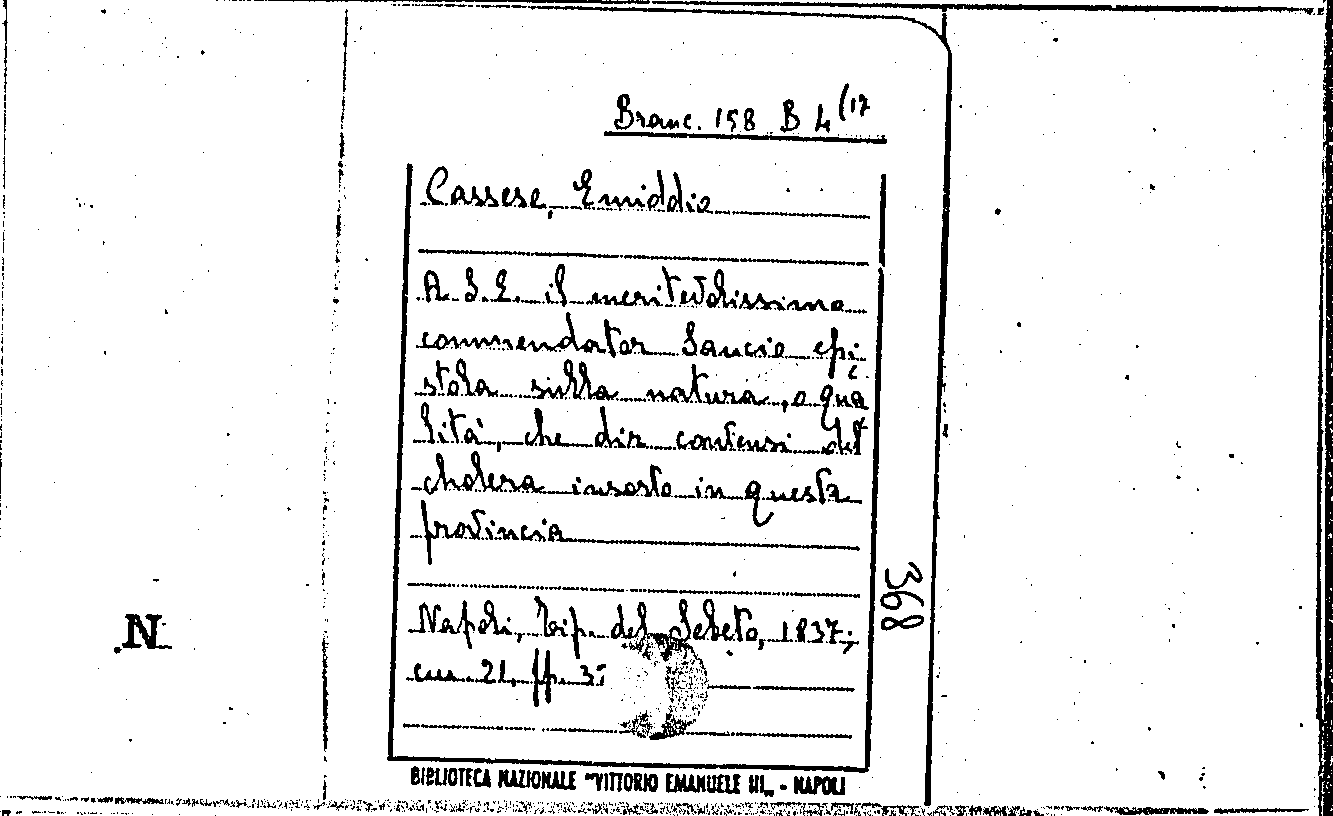 Branc. 158 B 4 (17
Cassese, Emiddio
A S. E. il meritevolissimo
commendator Sancio epi
stola sulla natura, o qua
lità, che dir conviensi del
cholera insorto in questa
provincia
Napoli, Tip. del Sebeto, 1837;
cm. 21, pp.
368
N
BIBLIOTECA NAZIONALE "VITTORIO EMANUELE III„ - NAPOLI